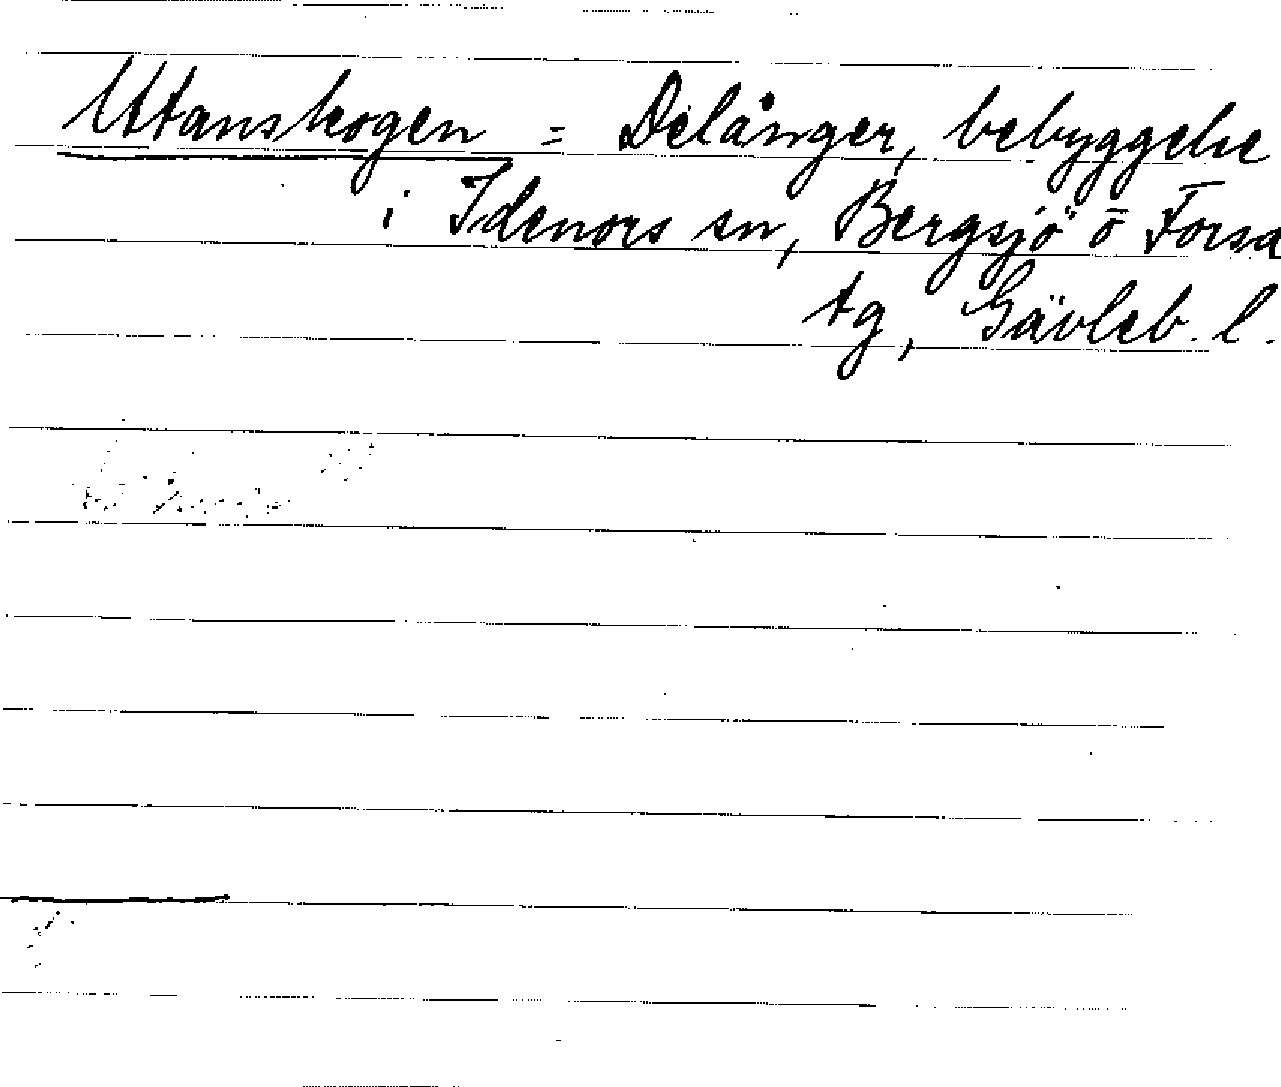 Utanskogen = Delånger, bebyggelse
i Idenors sn, Bergsjö o Forsa
tg, Gävleb. l.